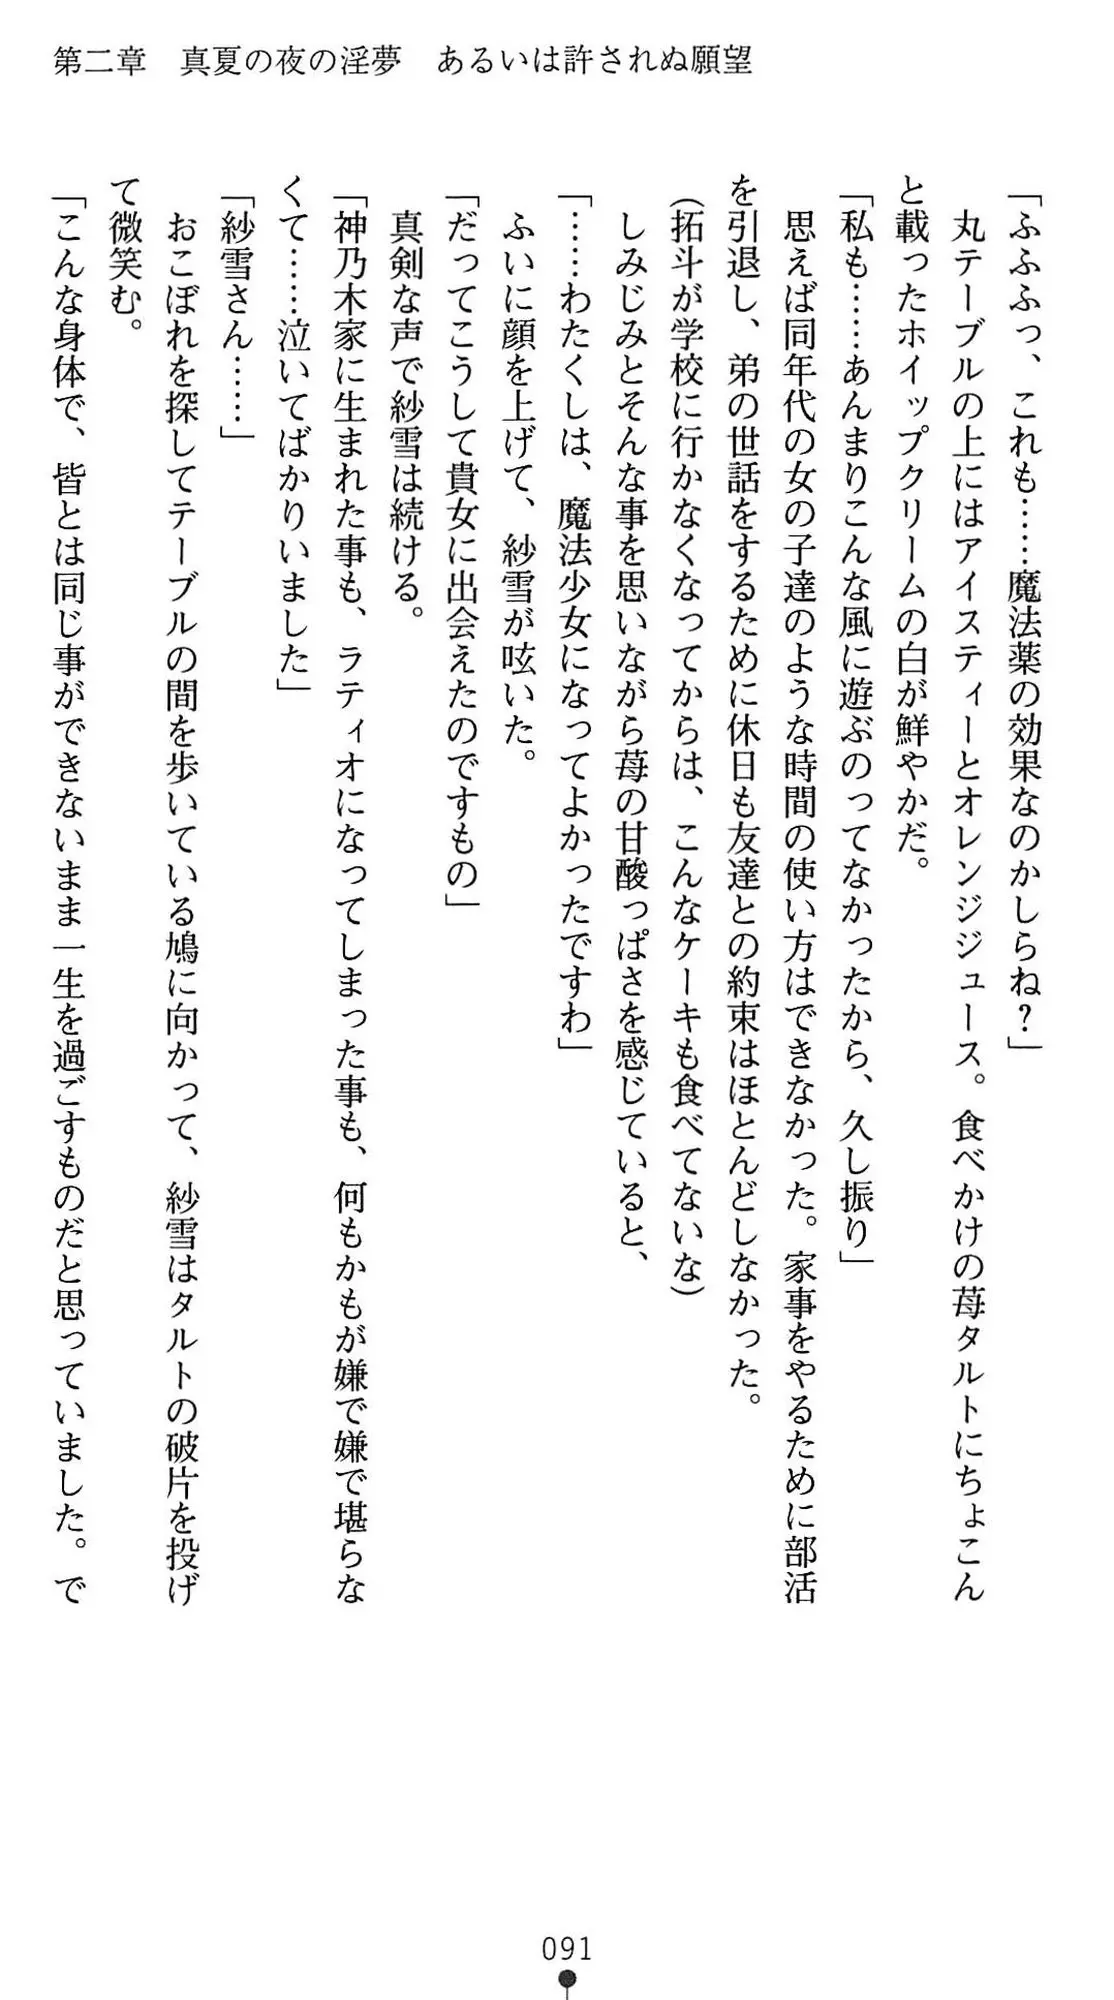 第二章　真夏の夜の淫夢　あるいは許されぬ願望
「ふふふっ、これも……魔法薬の効果なのかしらね？」
　丸テーブルの上にはアイスティーとオレンジジュース。食べかけの苺タルトにちょこん
と載ったホイップクリームの白が鮮やかだ。
「私も……あんまりこんな風に遊ぶのってなかったから、久し振り」
　思えば同年代の女の子達のような時間の使い方はできなかった。家事をやるために部活
を引退し、弟の世話をするために休日も友達との約束はほとんどしなかった。
（拓斗が学校に行かなくなってからは、こんなケーキも食べてないな）
　しみじみとそんな事を思いながら苺の甘酸っぱさを感じていると、
「……わたくしは、魔法少女になってよかったですわ」
　ふいに顔を上げて、紗雪が呟いた。
「だってこうして貴女に出会えたのですもの」
　真剣な声で紗雪は続ける。
「神乃木家に生まれた事も、ラティオになってしまった事も、何もかもが嫌で嫌で堪らな
くて……泣いてばかりいました」
「紗雪さん……」
　おこぼれを探してテーブルの間を歩いている鳩に向かって、紗雪はタルトの破片を投げ
て微笑む。
「こんな身体で、皆とは同じ事ができないまま一生を過ごすものだと思っていました。で
091